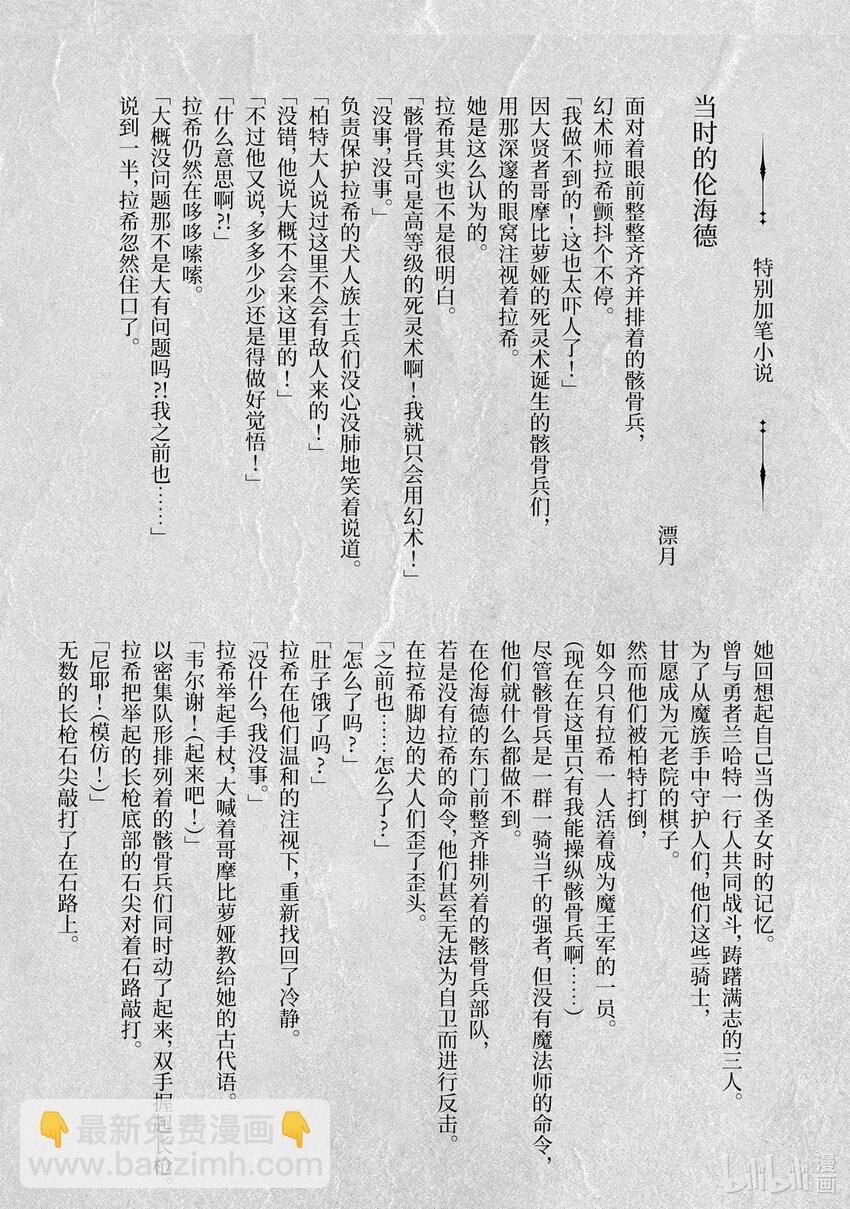 特别加笔小说
当时的伦海德
漂月
面对着眼前整整齐齐并排着的骸骨兵，
幻术师拉希颤抖个不停。
「我做不到的！这也太吓人了！」
因大贤者哥摩比萝娅的死灵术诞生的骸骨兵们，
用那深邃的眼窝注视着拉希。
她是这么认为的。
拉希其实也不是很明白。
「骸骨兵可是高等级的死灵术啊！我就只会用幻术！」
「没事，没事。」
负责保护拉希的犬人族士兵们没心没肺地笑着说道。
「柏特大人说过这里不会有敌人来的！」
「没错，他说大概不会来这里的！」
「不过他又说，多多少少还是得做好觉悟！」
「什么意思啊?!」
拉希仍然在哆哆嗦嗦。
「大概没问题那不是大有问题吗?!我之前也……」
说到一半，拉希忽然住口了。
她回想起自己当伪圣女时的记忆。
曾与勇者兰哈特一行人共同战斗，踌躇满志的三人。
为了从魔族手中守护人们，他们这些骑士，
甘愿成为元老院的棋子。
然而他们被柏特打倒，
如今只有拉希一人活着成为魔王军的一员。
(现在在这里只有我能操纵骸骨兵啊……)
尽管骸骨兵是一群一骑当千的强者，但没有魔法师的命令，
他们就什么都做不到。
在伦海德的东门前整齐排列着的骸骨兵部队，
若是没有拉希的命令，他们甚至无法为自卫而进行反击。
在拉希脚边的犬人们歪了歪头。
「之前也……怎么了?」
「怎么了吗?」
「肚子饿了吗?」
拉希在他们温和的注视下，重新找回了冷静。
「没什么，我没事。」
拉希举起手杖，大喊着哥摩比萝娅教给她的古代语。
「韦尔谢！(起来吧！)」
以密集队形排列着的骸骨兵们同时动了起来，双手握起长枪。
拉希把举起的长枪底部的石尖对着石路敲打。
「尼耶！(模仿！)」
无数的长枪石尖敲打了在石路上。
最新免费漫画
www.banzimh.com
bilibili漫画